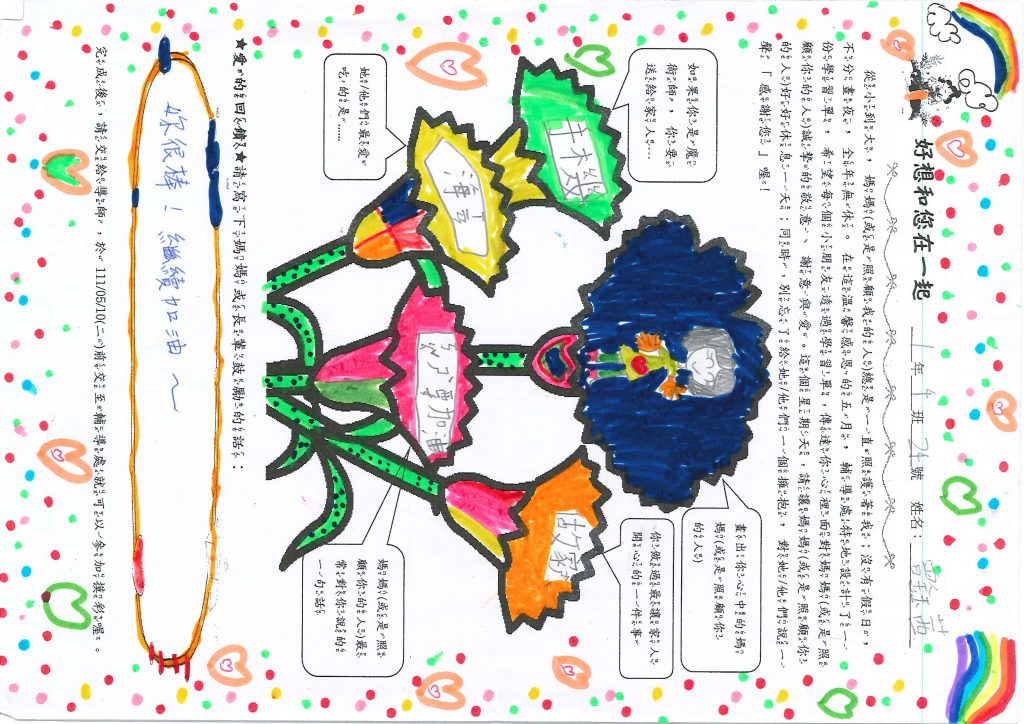 好想和您在一起
1年4班24號 姓名：
從小到大，媽媽(或是照顧我的人)總是一直照護著我；沒有假日，
不分晝夜，全年無休。在這溫馨感恩的五月，輔導處特地設計了一
份學習單，希望每個小朋友透過學習單，傳達你心裡面對媽媽(或是照
顧你的人)誠摯的敬意、謝意與愛。這個星期天，請讓媽媽(或是照顧你
的人)好好休息一天；同時，別忘了給她/他們一個擁抱，對她/他們說一
聲「感謝您」喔！
如果你是魔
術師，你要
送給家人…
畫出你心中的媽
媽(或是照顧你
的人)
她/他們最愛
吃的是……
你做過最讓家人
開心的一件事
加油
媽媽(或是照
顧你的人)最
常對你說的
一句話
★愛的回饋★請寫下媽媽或長輩鼓勵的話：
妳很棒！繼續加油～
完成後，請交給導師，於 111/05/10(二)前交至輔導處就可以參加摸彩喔。